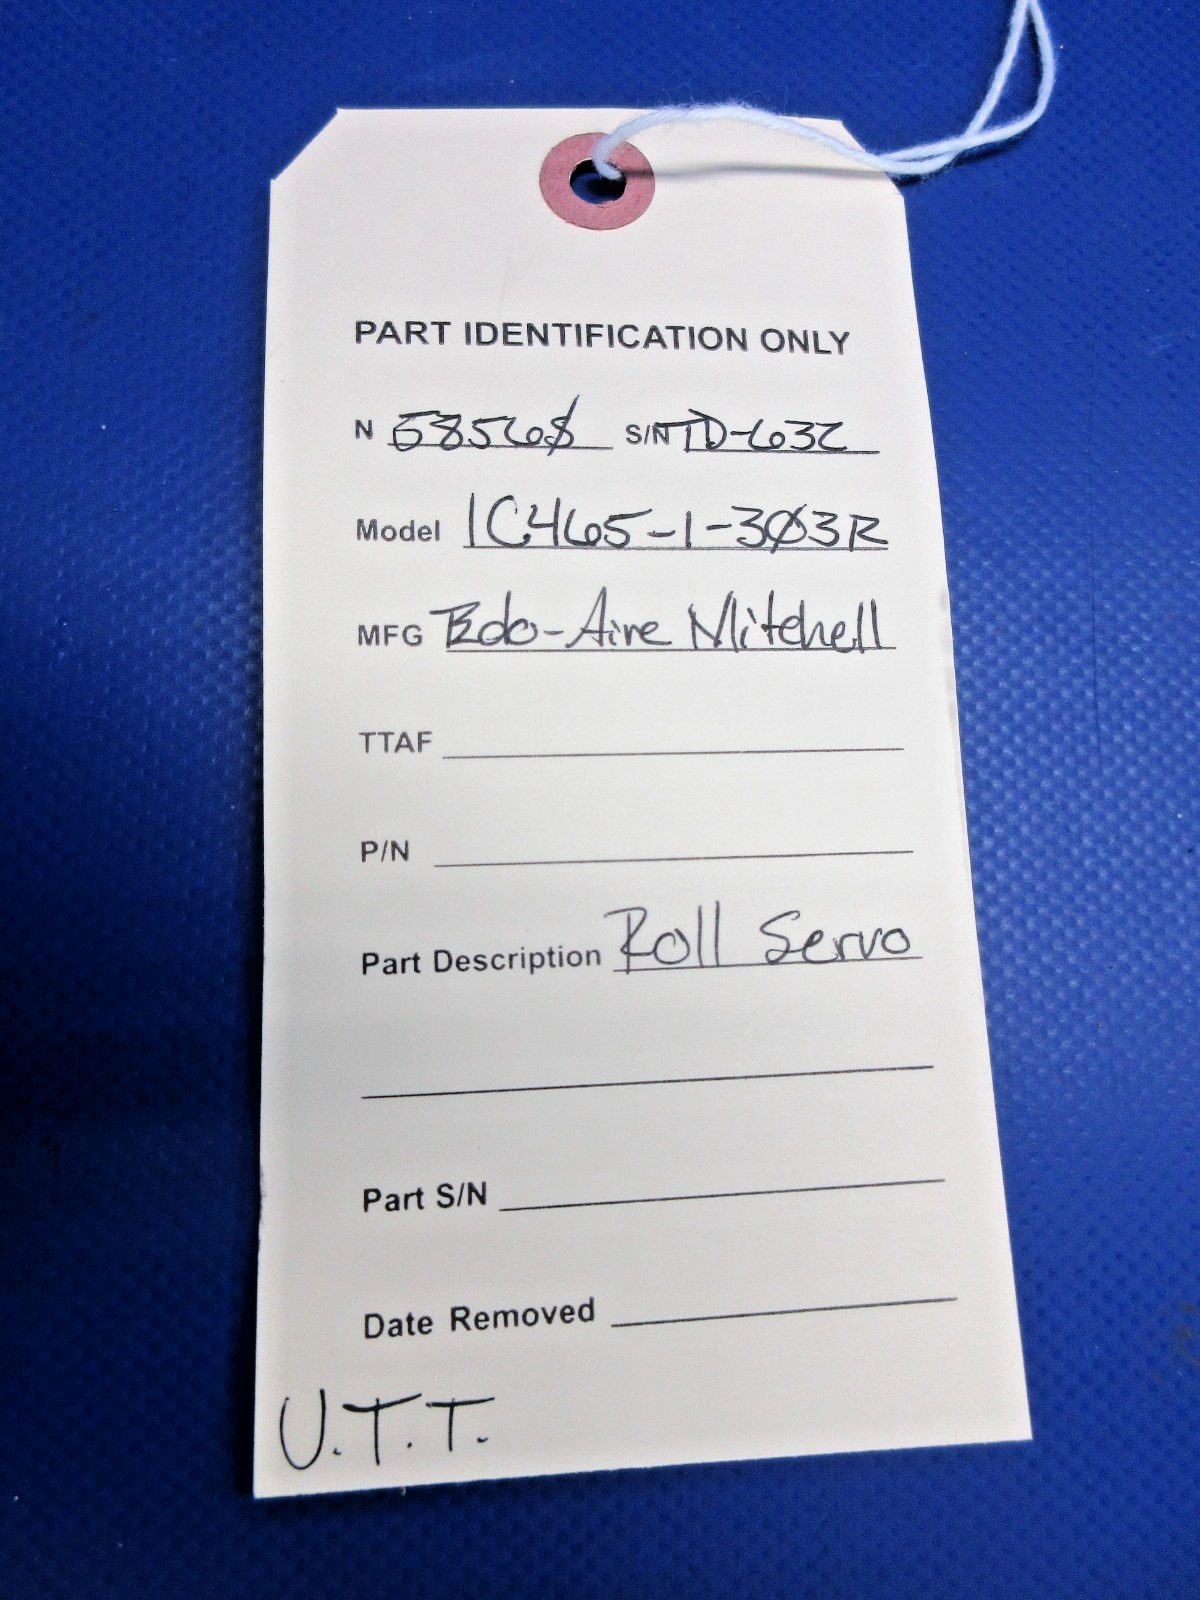 PART IDENTIFICATION ONLY
N 5856Ø S/N TD-632
Model 1C465-1-3Ø3R
MFG Edo-Aire Mitchell
TTAF
P/N
Part Description Roll Servo
Part S/N
Date Removed
U.T.T.